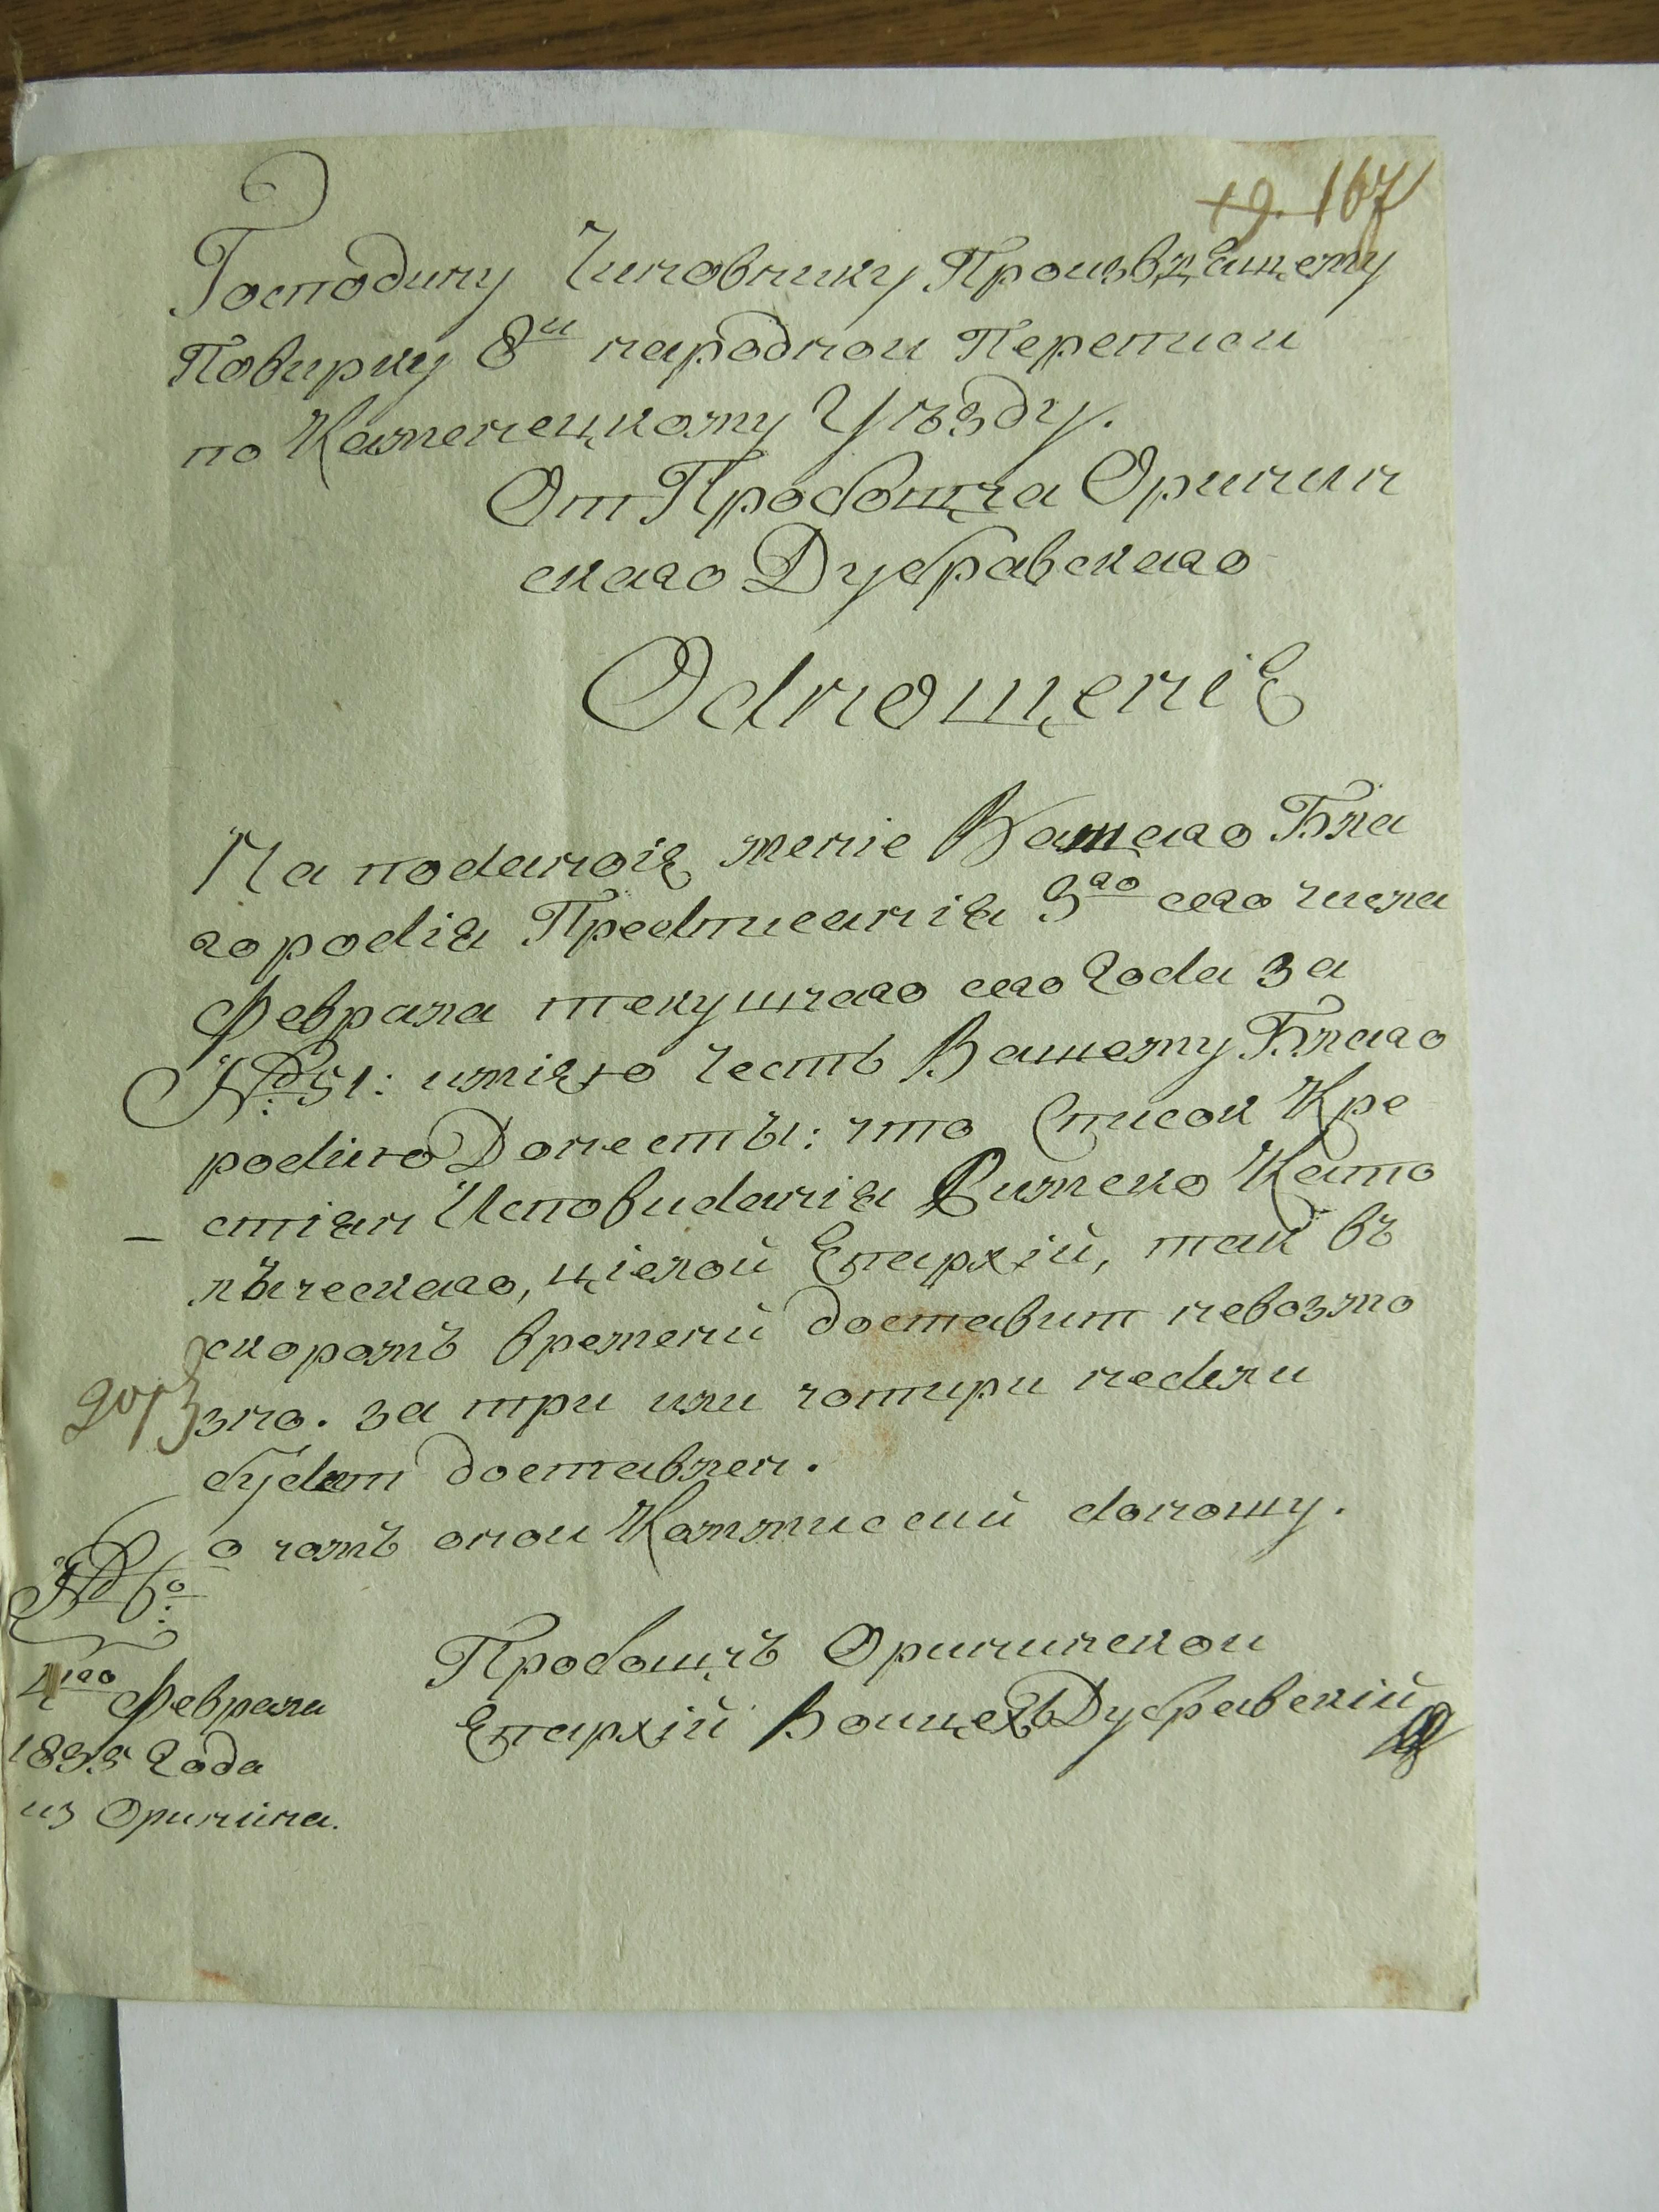 167
Господину Чиновнику Произвдящему
Повирку 8й народнои Переписи
по Каменецкому Уѣзду.
От Пробоща Оринин
скаго Дубравскаго
Однощеніе
На поданоіе мение Вашего Бла
городія Предписаніа 3го сего числа
Февраля текущчаго сего Года за
№ 51: иміею Честь Вашему Благо
родию Донесты: что Список Кре
стіан Исповиданіа Римско Като
лыческаго, ціелой Епархій, так въ
скоромъ времений доставит невозмо
зно. за три или чотири недели
будет доставлен.
о чомъ онои Коммиссий доношу.
№ 6о
4го Февраля
1835 Года
из Оринина.
Пробощъ Орининскои
Епархій Воицехъ Дубравскій